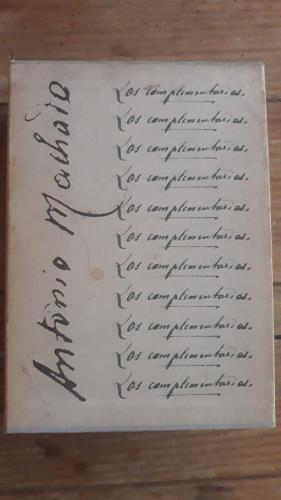 Antonio Machado
Los complementarios.
Los complementarios.
Los complementarios.
Los complementarios.
Los complementarios.
Los complementarios.
Los complementarios.
Los complementarios.
Los complementarios.
Los complementarios.
Los complementarios.